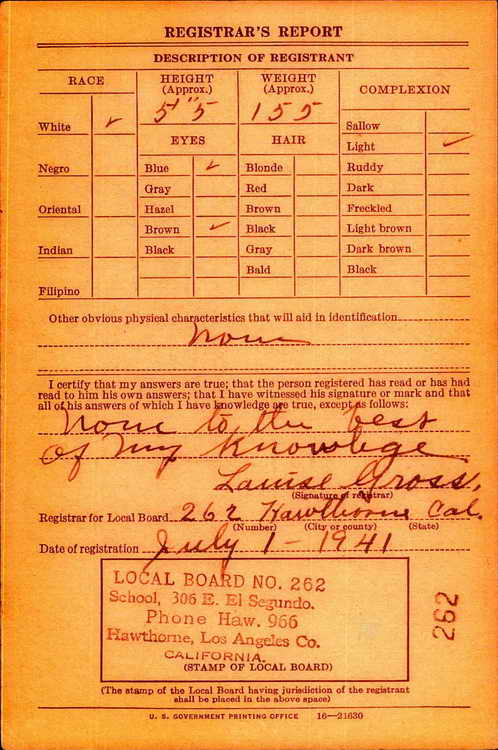 REGISTRAR'S REPORT
DESCRIPTION OF REGISTRANT
RACE
HEIGHT
(Approx.)
WEIGHT
(Approx.)
COMPLEXION
5'"5
155
White ✓
Sallow
EYES
HAIR
Light ✓
Negro
Blue ✓
Blonde
Ruddy
Gray
Red
Dark
Oriental
Hazel
Brown
Freckled
Brown ✓
Black
Light brown
Indian
Black
Gray
Dark brown
Bald
Black
Filipino
Other obvious physical characteristics that will aid in identification
None
I certify that my answers are true; that the person registered has read or has had
read to him his own answers; that I have witnessed his signature or mark and that
all of his answers of which I have knowledge are true, except as follows:
None to the best
of my knowlege
Louise Gross,
(Signature of registrar)
Registrar for Local Board 262 Hawthorne Cal.
(Number) (City or county) (State)
Date of registration July 1 - 1941
LOCAL BOARD NO. 262
School, 306 E. El Segundo.
Phone Haw. 966
Hawthorne, Los Angeles Co.
CALIFORNIA.
(STAMP OF LOCAL BOARD)
262
(The stamp of the Local Board having jurisdiction of the registrant
shall be placed in the above space)
U. S. GOVERNMENT PRINTING OFFICE 16—21630